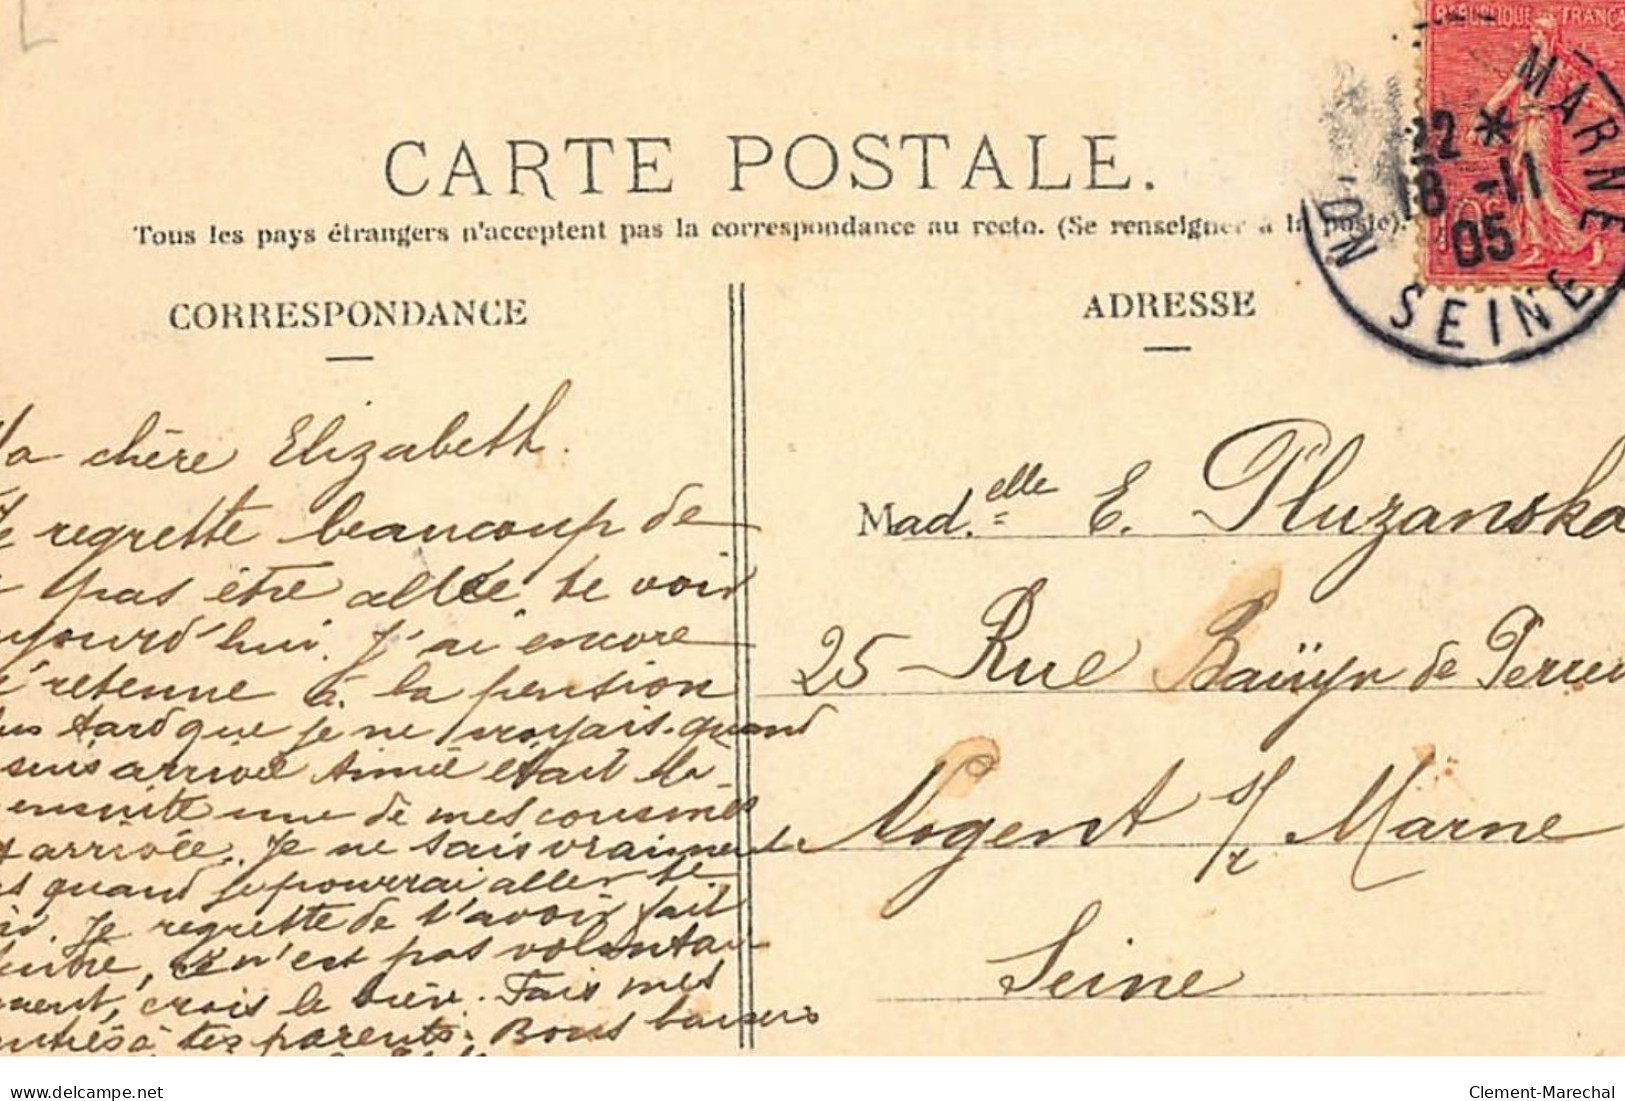 REPUBLIQUE FRANÇA
MARNE
22 *
18 -11
05
SEINE
CARTE POSTALE.
Tous les pays étrangers n'acceptent pas la correspondance au recto. (Se renseigner à la poste).
CORRESPONDANCE
ADRESSE
la chère Elizabeth.
Je regrette beaucoup de
pas être allée te voir
ujourd'hui. J'ai encore
é retenue à la pension
lus tard que je ne croyais. quand
suis arrivée Aimée était là
ensuite une de mes cousines
est arrivée. Je ne sais vraiment
as quand je pourrai aller te
oir. Je regrette de t'avoir fait
tendre, ce n'est pas volontai-
ment, crois le bien. Fais mes
itiés à tes parents. Bons baisers
Mad.elle E. Pluzanska
25 Rue Baüyn de Perreu
Nogent s/ Marne
Seine
delcampe.net
Clement-Marechal